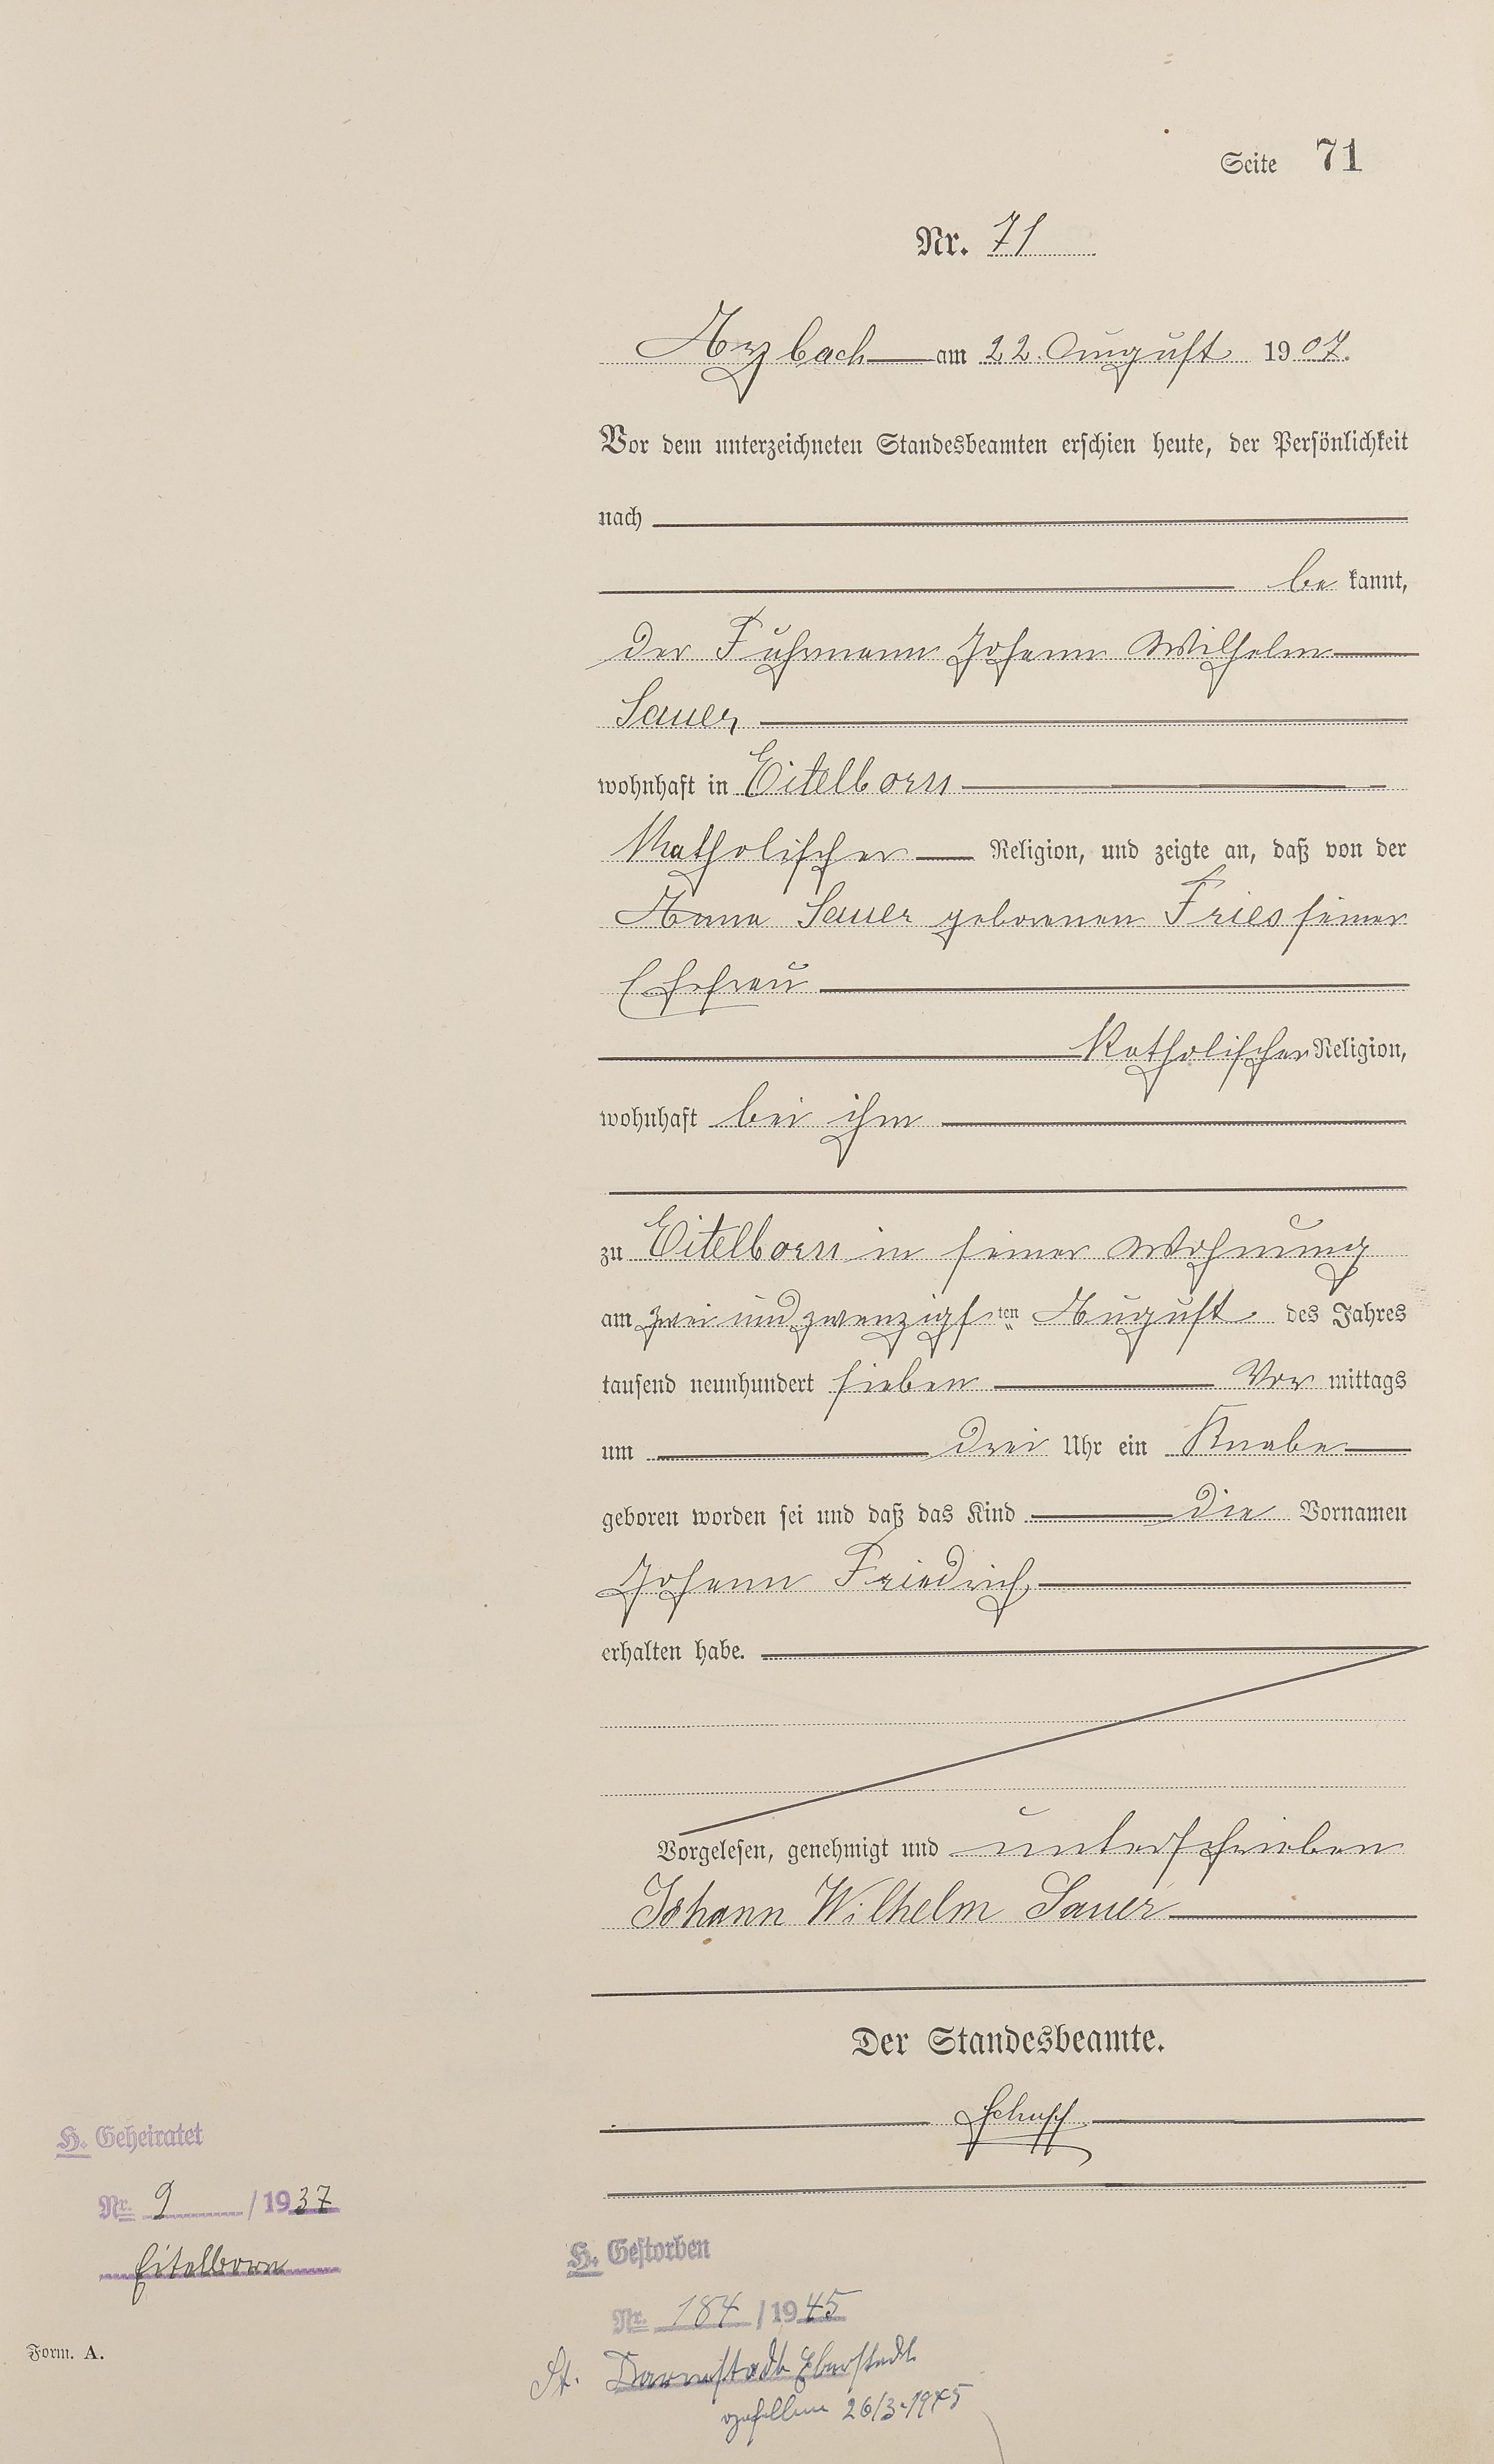 Seite 71
Nr. 71
Arzbach am 22. August 1907.
Vor dem unterzeichneten Standesbeamten erschien heute, der Persönlichkeit
nach
be kannt,
der Fuhrmann Johann Wilhelm
Sauer,
wohnhaft in Eitelborn
Katholischer Religion, und zeigte an, daß von der
Anna Sauer geborenen Fries seiner
Ehefrau
Katholischer Religion,
wohnhaft bei ihm
zu Eitelborn in seiner Wohnung
am zwei und zwanzigsten August des Jahres
tausend neunhundert sieben Vor mittags
um drei Uhr ein Knabe
geboren worden sei und daß das Kind die Vornamen
Johann Friedrich
erhalten habe.
Vorgelesen, genehmigt und unterschrieben
Johann Wilhelm Sauer
Der Standesbeamte.
H. Geheiratet
Nr. 9 /1937
Eitelborn
H. Gestorben
Nr. 184 /1945
St. Darmstadt Eberstadt
gefallen 26/3.1945
Form. A.